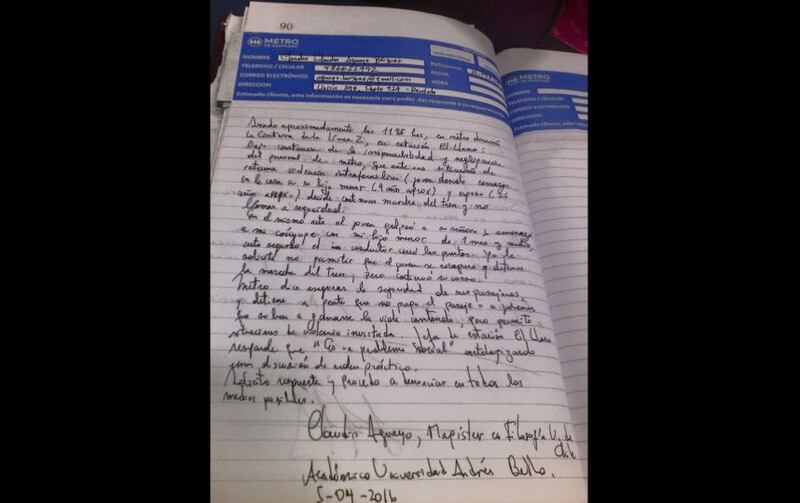 90
METRO
DE SANTIAGO
NOMBRE Claudio Aguayo
TELEFONO / CELULAR
CORREO ELECTRÓNICO
DIRECCION
FECHA
HORA
Estimado Cliente, esta información es necesaria para poder dar respuesta a su requerimiento
METRO
NOMBRE
TELEFONO / CELULAR
CORREO ELECTRÓNICO
DIRECCION
Estimado Cliente, esta inform
Siendo aproximadamente las hrs, en metro dirección
la Cisterna de la Línea 2, en estación El Llano:
Dejo constancia de la irresponsabilidad y negligencia
del personal de metro, que ante una situación de
extrema violencia intrafamiliar (joven dando
en la cara a su hijo menor (4 años aprox) y esposa (
año aprox.) decide continuar marcha del tren y no
llamar a seguridad.
En el mismo acto el joven golpeó a su señora y amenazó
a mi cónyuge con mi hijo menor de 1 mes y medio,
acto seguido el conductor cerró las puertas. Yo le
solicité no permitir que el joven se escapara y detener
la marcha del tren, pero continuó su curso.
Metro dice asegurar la seguridad de sus pasajeros,
y detiene a gente que no paga el pasaje o a jóvenes
que suben a ganarse la vida cantando, pero permite
situaciones de violencia inusitada. Jefa de estación El Llano
responde que "Es un problema social"
una discusión de orden práctico.
Solicito respuesta y procedo a denunciar en todos los
medios posibles.
Claudio Aguayo, Magíster en Filosofía U. de
Chile
Académico Universidad Andrés Bello.
5-04-2016